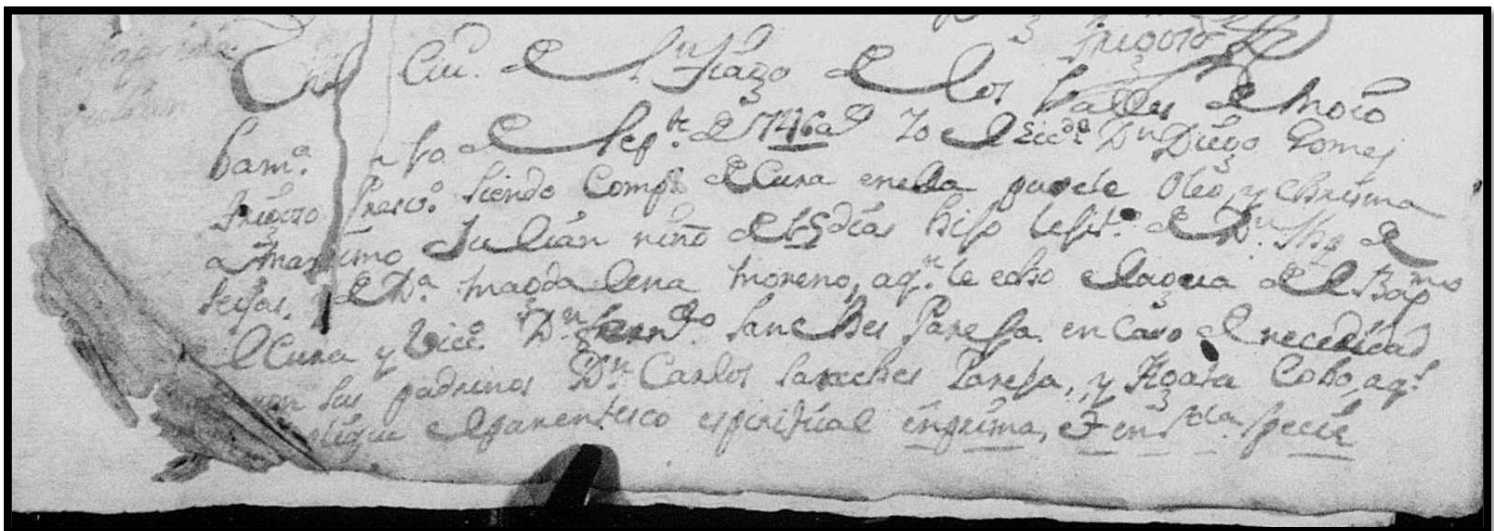 Frigoso
En la Ciu.d de S.n Tiago de los Valles de Moio
bam.a a 10 de Sep.te de 1746 a.s Yo el Licd.o D.n Diego Gomes
Frigoso Presv.o siendo Comp.o de Cura en ella puse le Oleo, y Chrisma
a Maximo Julian niño de 15 dias hijo lexit.o de D.n Tho de
Seijas, y de D.a Magdalena Moreno, aq.n le echo el agua de el Bap.mo
el Cura y Vicc.o D.n Fern.do Sanches Pareja en caso de necesidad
ron sus padrinos D.n Carlos Sanches Pareja, y Agata Cobo, aq.s
plique el parentesco espiritual en prima, et en s.cda specie